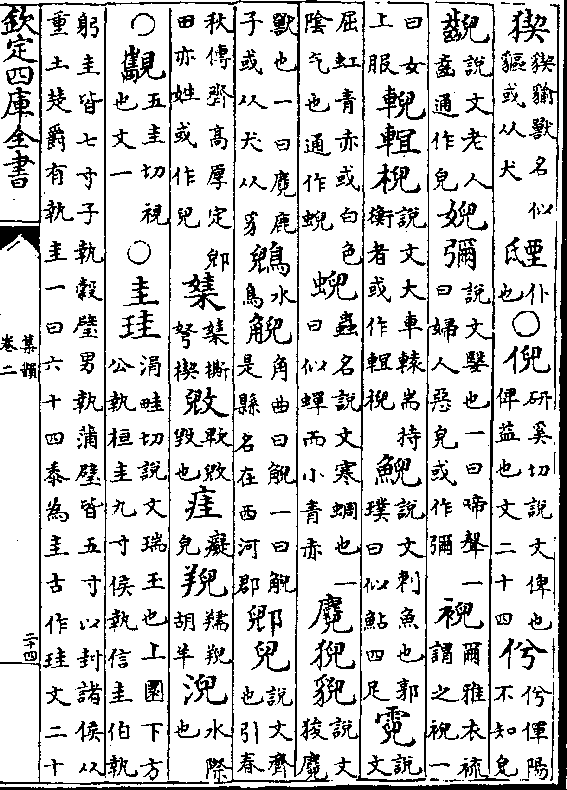 猰猰貐獸名似貙或从犬 仆也○倪研奚切說文俾也俾益也文二十四兮兮倱陽不知皃
齯說文老人齒通作兒婗彌說文嫛也一曰啼聲一曰婦人惡皃或作彌䘽爾雅衣䘳謂之䘽一
曰女上服輗輯棿說文大車轅耑持衡者或作輯棿鯢說文刺魚也郭璞曰似鮎四足霓說文
屈虹青赤或白色陰气也通作蜺蜺蟲名說文寒蜩也一曰似蟬而小青赤麑猊貎說文狻麑
獸也一曰麑鹿子或从犬从豸鶃水鳥觬角曲曰觬一曰觬是縣名在西河郡郳兒說文齊也引春
秋傳齊高厚定郳田亦姓或作兒 撕弩楔 毀也 癡皃 羺 胡羊淣水際也
○ 五圭切視也文一○圭珪涓畦切說文瑞玉也上圜下方公執桓圭九寸侯執信圭伯執
躬圭皆七寸子執穀璧男執蒲璧皆五寸以封諸侯从重土楚爵有執圭一曰六十四黍為圭古作珪文二十
欽定四庫全書
集韻
卷二
二十四